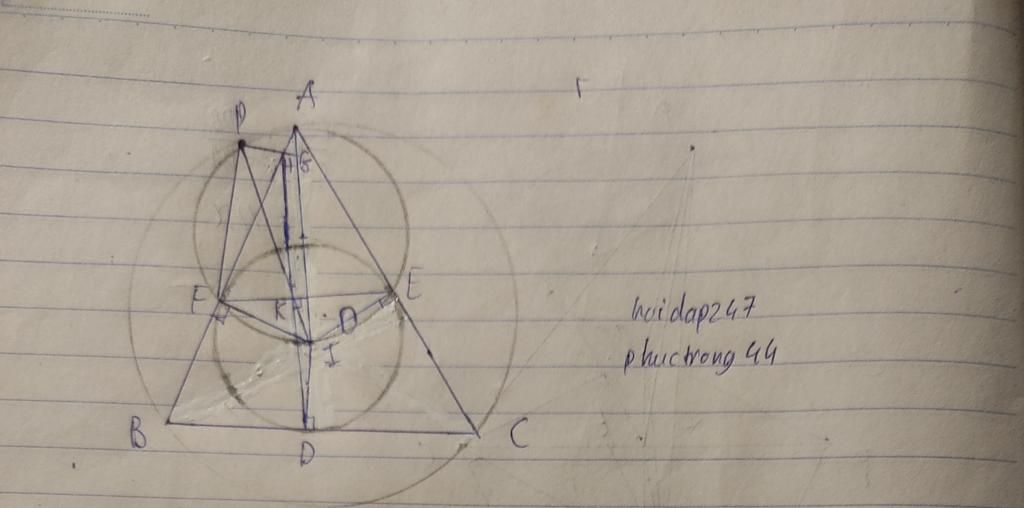 A
P
G
F
E
K
O
I
B
D
C
hoidap247
phuctrong44